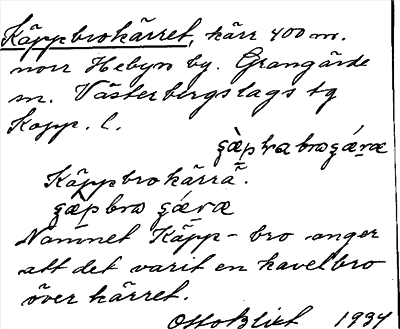 Käppbrokärret, kärr 400 m.
norr Hebyn by. Grangärde
m. Västerbergslags tg
Kopp. l.
Käppbrokärrä.
Namnet Käpp-bro anger
att det varit en kavelbro
över kärret.
Otto Blixt 1934